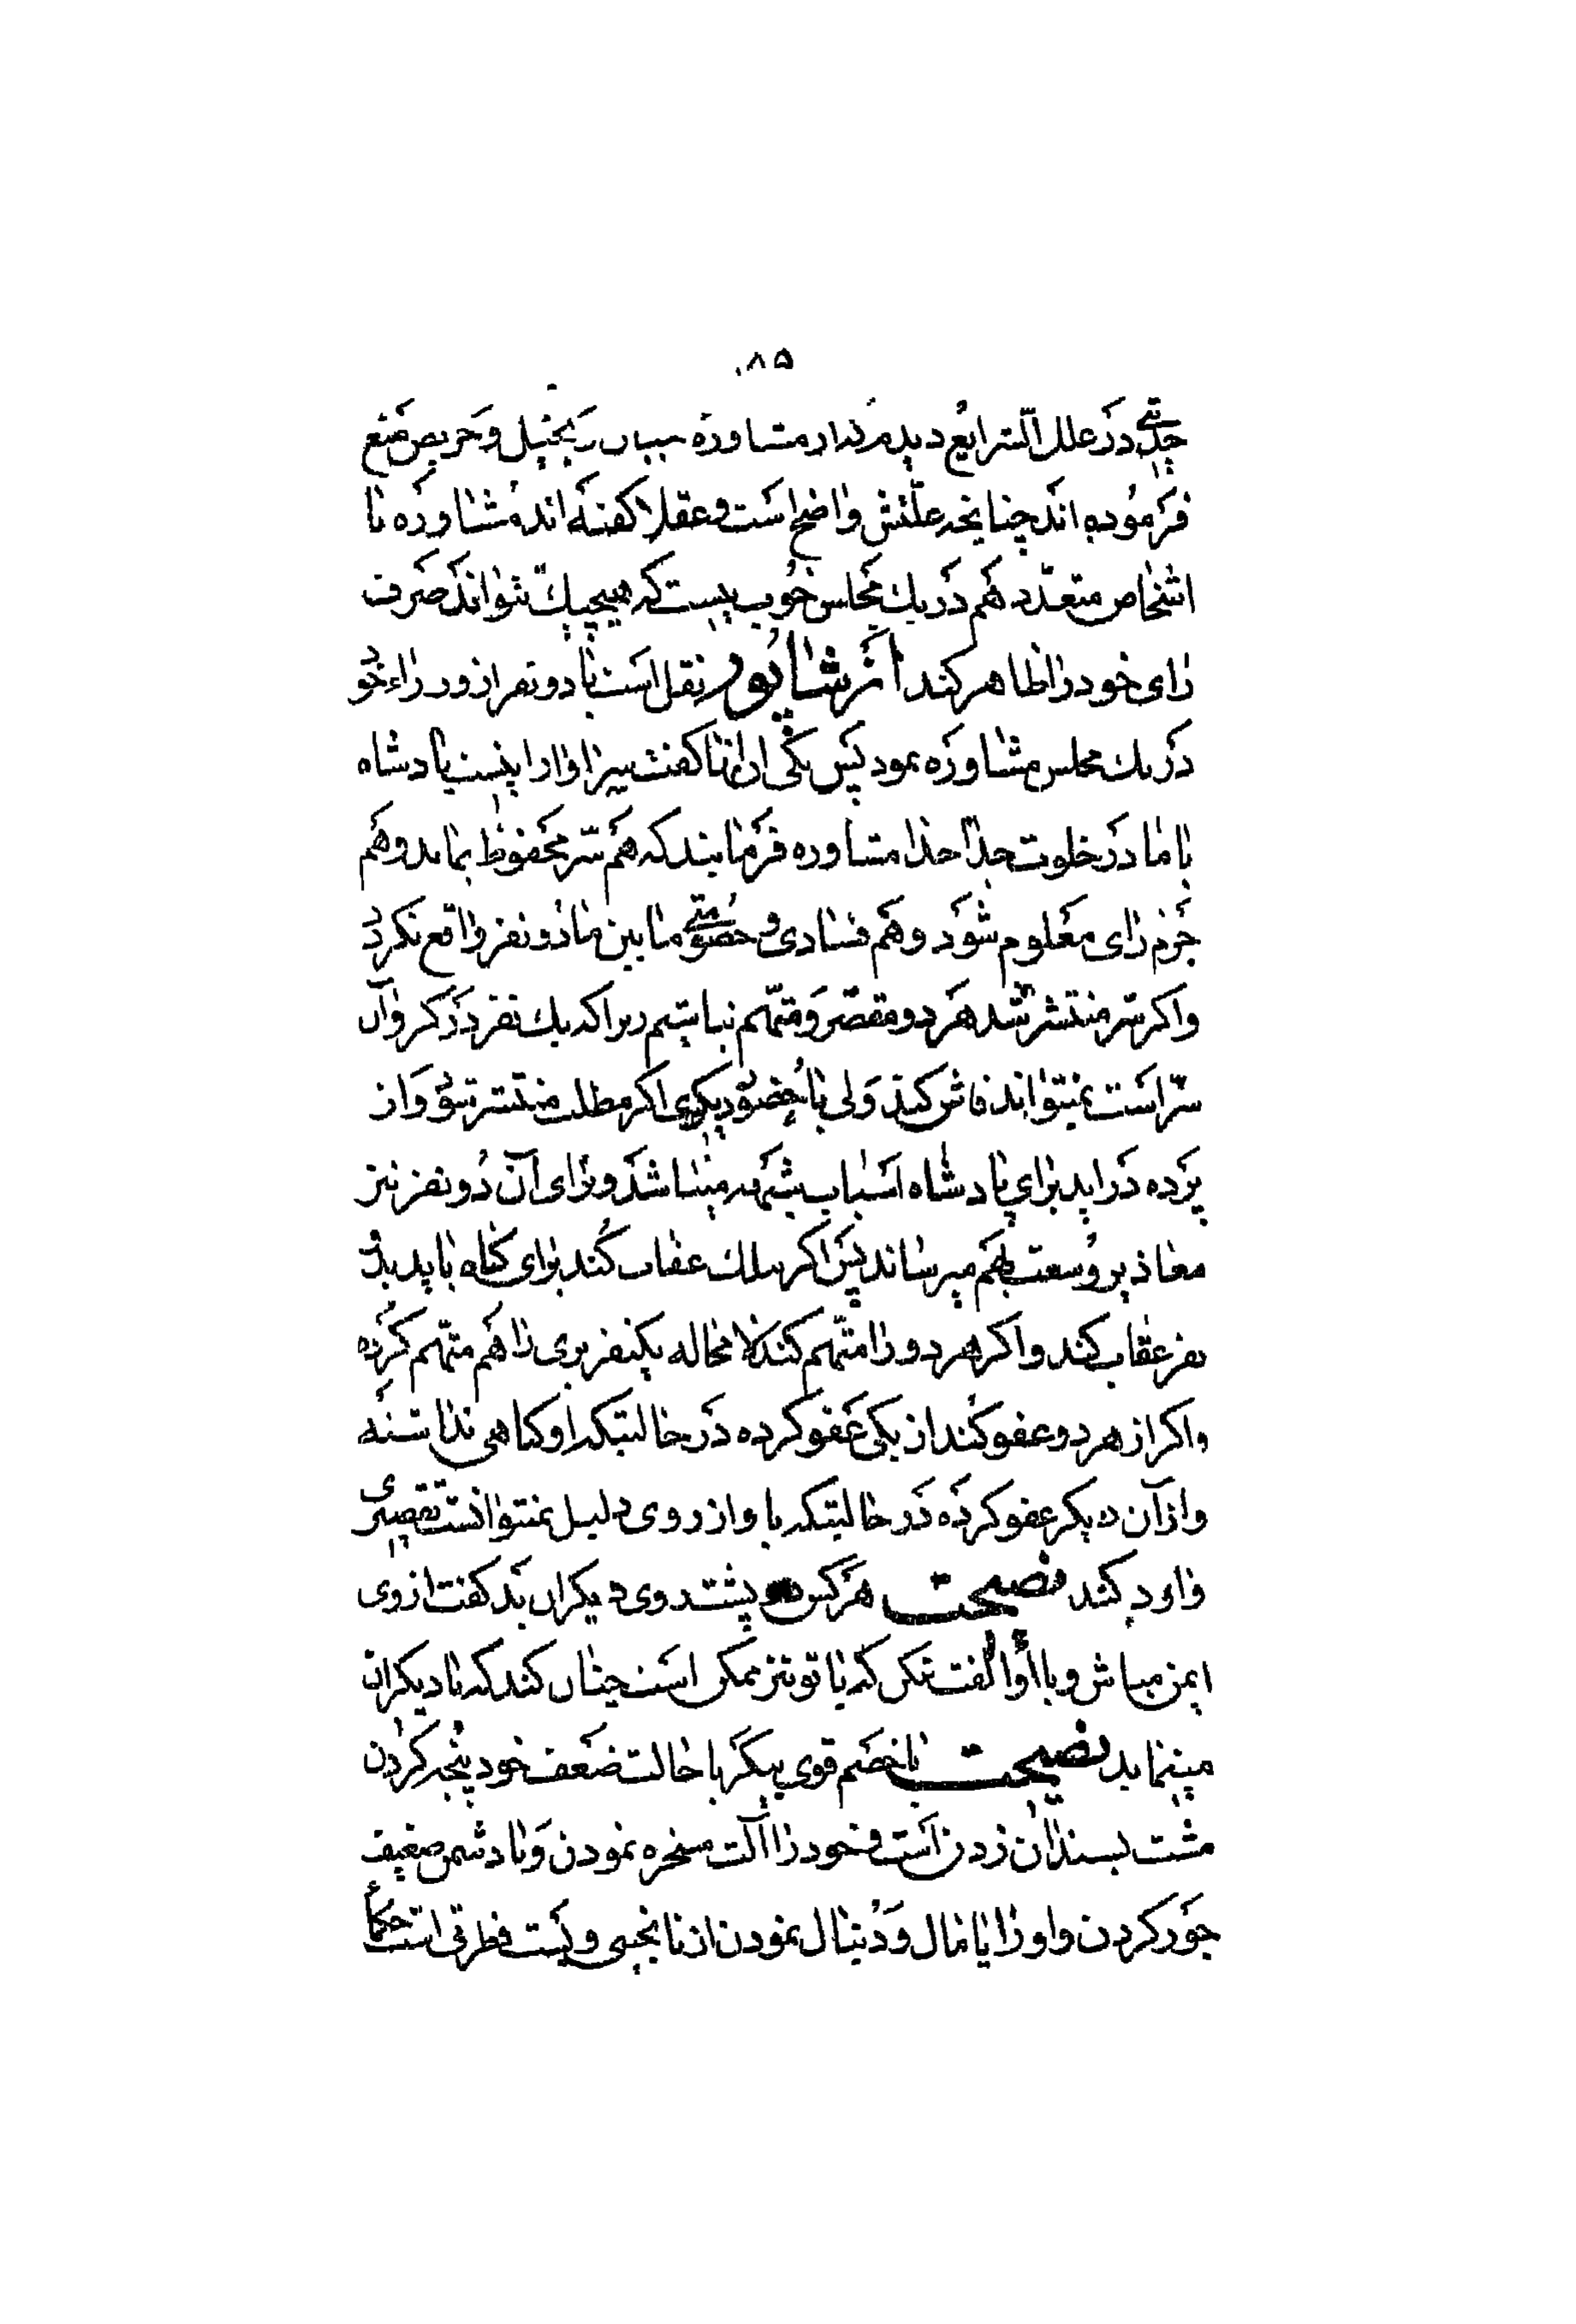 ۸۵
حدیثی در علل الشرایع دیدم که از مشاوره جبان و بخیل و حریص منع
فرموده اند چنانچه علتش واضح است و عقلا گفته اند مشاوره با
اشخاص متعدد هم در یك مجلس خوب نیست که هیچیك نتواند صرف
رای خود را ظاهر کند از شاپور نقل است با دو نفر از وزراء خود
در یك مجلس مشاوره نمود پس یکی از آنها گفت سزاوار اینست پادشاه
با ما در خلوت جدا جدا مشاوره فرمایند که هم سر محفوظ بماند و هم
جزم رای معلوم شود و هم فسادی و خصومتی مابین ما دو نفر واقع نگردد
و اگر سر منتشر شد هر دو مقصر و متهم نباشیم زیرا که یك نفر در گرو آن
سر است نمیتواند فاش کند ولی با حضور دیگری اگر مطلب منتشر شود و از
پرده در اید برای پادشاه اسباب شبهه میباشد و برای آن دو نفر نیز
معاذیر وسعت بهم میرساند پس اگر ملك عقاب کند برای گناه باید بدو
نفر عقاب کند و اگر هر دو را متهم کند لا محاله یکنفر بری را هم متهم کرده
و اگر از هر دو عفو کند از یکی عفو کرده در حالتیکه او گناهی نداشته
و از آن دیگر عفو کرده در حالتیکه باو از روی دلیل نمیتوانست تقصیری
وارد کند نصیحت هر کس پشت روی دیگران بد گفت از وی
ایمن مباش و با او الفت مکن که با تو نیز ممکن است چنان کند که با دیگران
مینماید نصیحت با خصم قوی پیکر با حالت ضعف خود پنجه کردن
مشت بسندان زدن است و خود را آلت مسخره نمودن و با دشمن ضعیف
جور کردن و او را پامال و دنبال نمودن از نانجیبی و پست فطرتی است حکما